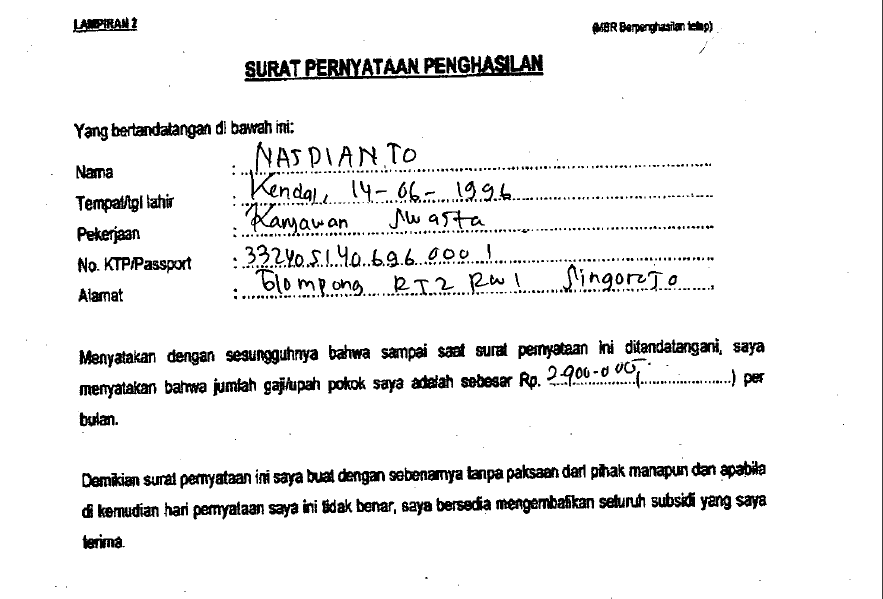 LAMPIRAN 2
(MBR Berpenghasilan tetap)
SURAT PERNYATAAN PENGHASILAN
Yang bertandatangan di bawah ini:
Nama : NASDIANTO
Tempat/tgl lahir : Kendal, 14-06-1996
Pekerjaan : Karyawan Swasta
No. KTP/Passport : 3324051406960001
Alamat : RT2 RW1
Menyatakan dengan sesungguhnya bahwa sampai saat surat pernyataan ini ditandatangani, saya
menyatakan bahwa jumlah gaji/upah pokok saya adalah sebesar Rp. 2.900.000,(......................) per
bulan.
Demikian surat pernyataan ini saya buat dengan sebenarnya tanpa paksaan dari pihak manapun dan apabila
di kemudian hari pernyataan saya ini tidak benar, saya bersedia mengembalikan seluruh subsidi yang saya
terima.